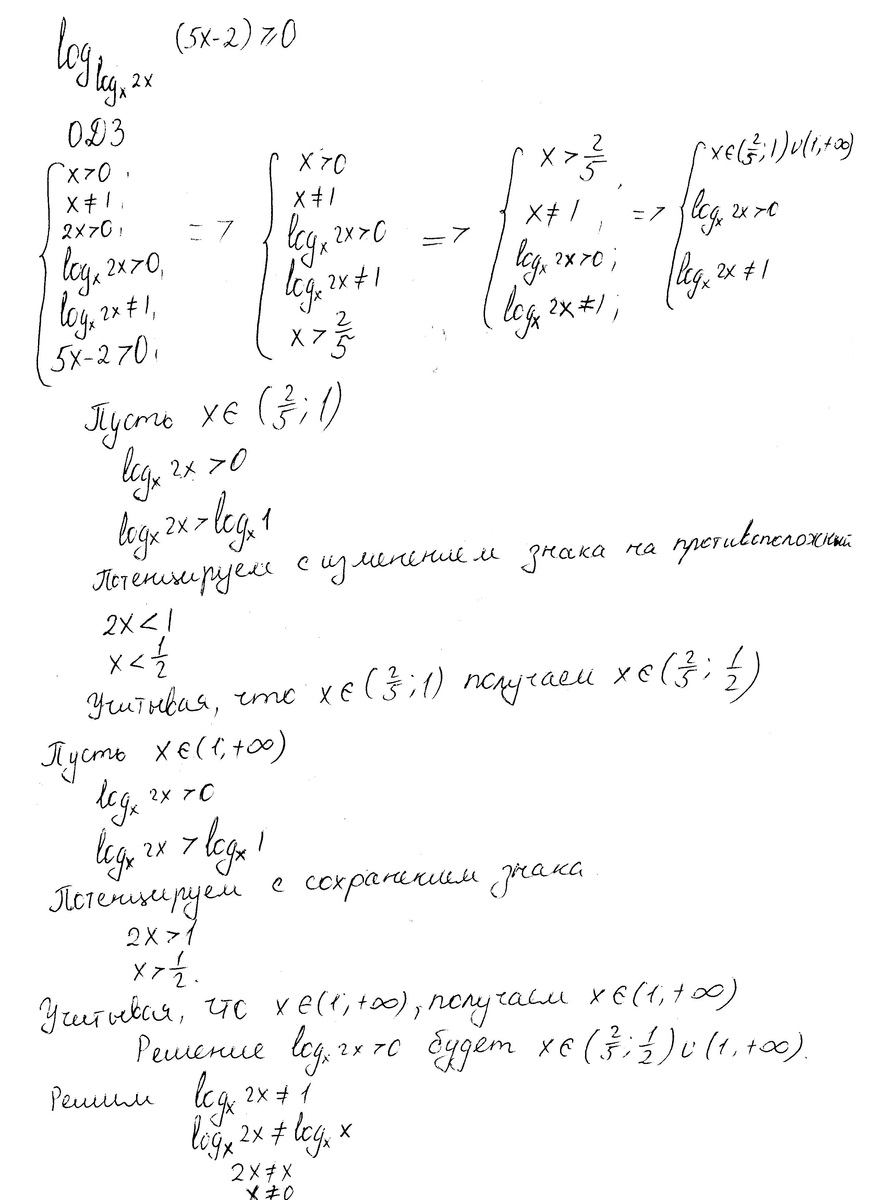 log_{log_x 2x} (5x-2) ⩾ 0
ОДЗ
{ x>0, x≠1, 2x>0, log_x 2x>0, log_x 2x≠1, 5x-2>0, => { x>0 x≠1 log_x 2x>0 log_x 2x≠1 x>2/5 => { x>2/5, x≠1, log_x 2x>0; log_x 2x≠1; => { x∈(2/5;1)∪(1,+∞) log_x 2x>0 log_x 2x≠1
Пусть x∈(2/5;1)
log_x 2x>0
log_x 2x>log_x 1
Потенцируем с изменением знака на противоположный
2x<1
x<1/2
Учитывая, что x∈(2/5;1) получаем x∈(2/5;1/2)
Пусть x∈(1,+∞)
log_x 2x>0
log_x 2x>log_x 1
Потенцируем с сохранением знака
2x>1
x>1/2.
Учитывая, что x∈(1,+∞), получаем x∈(1,+∞)
Решение log_x 2x>0 будет x∈(2/5;1/2)∪(1,+∞).
Решим log_x 2x≠1
log_x 2x≠log_x x
2x≠x
x≠0